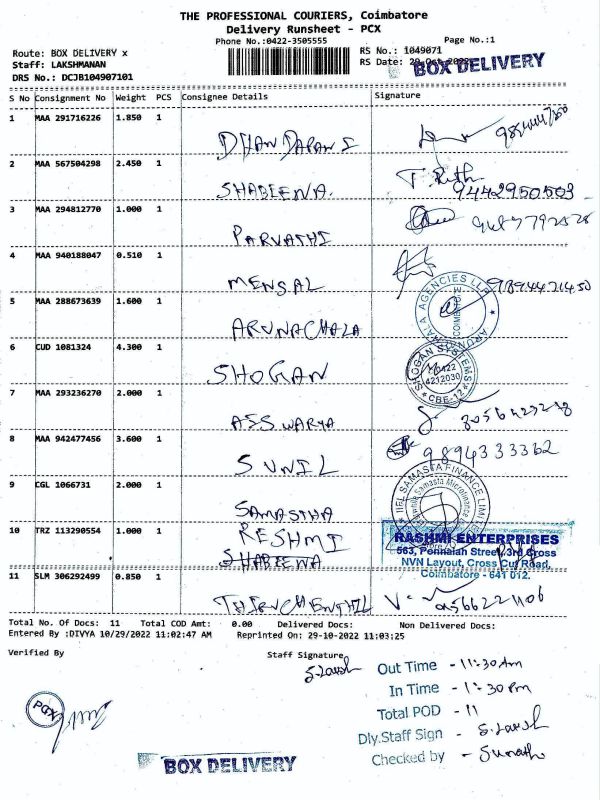 THE PROFESSIONAL COURIERS, Coimbatore
Delivery Runsheet - PCX
Phone No.:0422-3505555
Page No.:1
Route: BOX DELIVERY x
RS No.: 1049071
Staff: LAKSHMANAN
RS Date: 29-Oct-2022
BOX DELIVERY
DRS No.: DCJB104907101
S No Consignment No Weight PCS Consignee Details Signature
1 MAA 291716226 1.850 1
DHANDAPANI
2 MAA 567504298 2.450 1
SHABEENA. 9442950503
3 MAA 294812770 1.000 1
PARVATHI
4 MAA 940188047 0.510 1
MENSAL 9894421450
5 MAA 288673639 1.600 1
ARUNACHALA
ARUNACHALA AGENCIES LLP
6 CUD 1081324 4.300 1
SHOGAN
SHOGAN SYSTEMS
0422
4212030
CBE-12
7 MAA 293236270 2.000 1
AISWARYA
8 MAA 942477456 3.600 1
SUNIL 9894333362
9 CGL 1066731 2.000 1
SAMASTHA
IIFL SAMASTA FINANCE LIMITED
10 TRZ 113290554 1.000 1
RESHMI
SHABEENA
RASHMI ENTERPRISES
563, Ponnaiah Street, 3rd Cross
NVN Layout, Cross Cut Road,
Coimbatore - 641 012.
11 SLM 306292499 0.850 1
THIRUCHENTHIL
Total No. Of Docs: 11 Total COD Amt: 0.00 Delivered Docs: Non Delivered Docs:
Entered By :DIVYA 10/29/2022 11:02:47 AM Reprinted On: 29-10-2022 11:03:25
Verified By Staff Signature
Out Time - 11:30 Am
In Time - 1:30 Pm
Total POD - 11
Dly.Staff Sign -
Checked by -
PCX
BOX DELIVERY